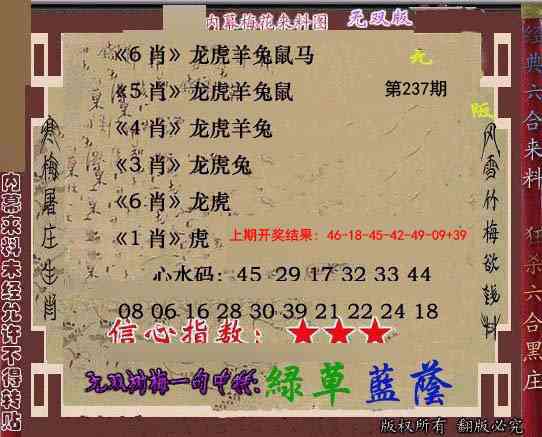 内幕梅花来料图 无双版
《6 肖》龙虎羊兔鼠马
《5 肖》龙虎羊兔鼠
第237期
《4 肖》龙虎羊兔
《3 肖》龙虎兔
《6 肖》龙虎
《1 肖》虎
上期开奖结果：46-18-45-42-49-09+39
心水码：45 29 17 32 33 44
08 06 16 28 30 39 21 22 24 18
信心指数：★★★
无双 梅一句中特:綠草藍蔭
版权所有 翻版必究
寒梅屠庄生肖
风雪竹梅欲钱料
内幕来料未经允许不得转贴
经典六合来料
狂杀六合黑庄
无
版